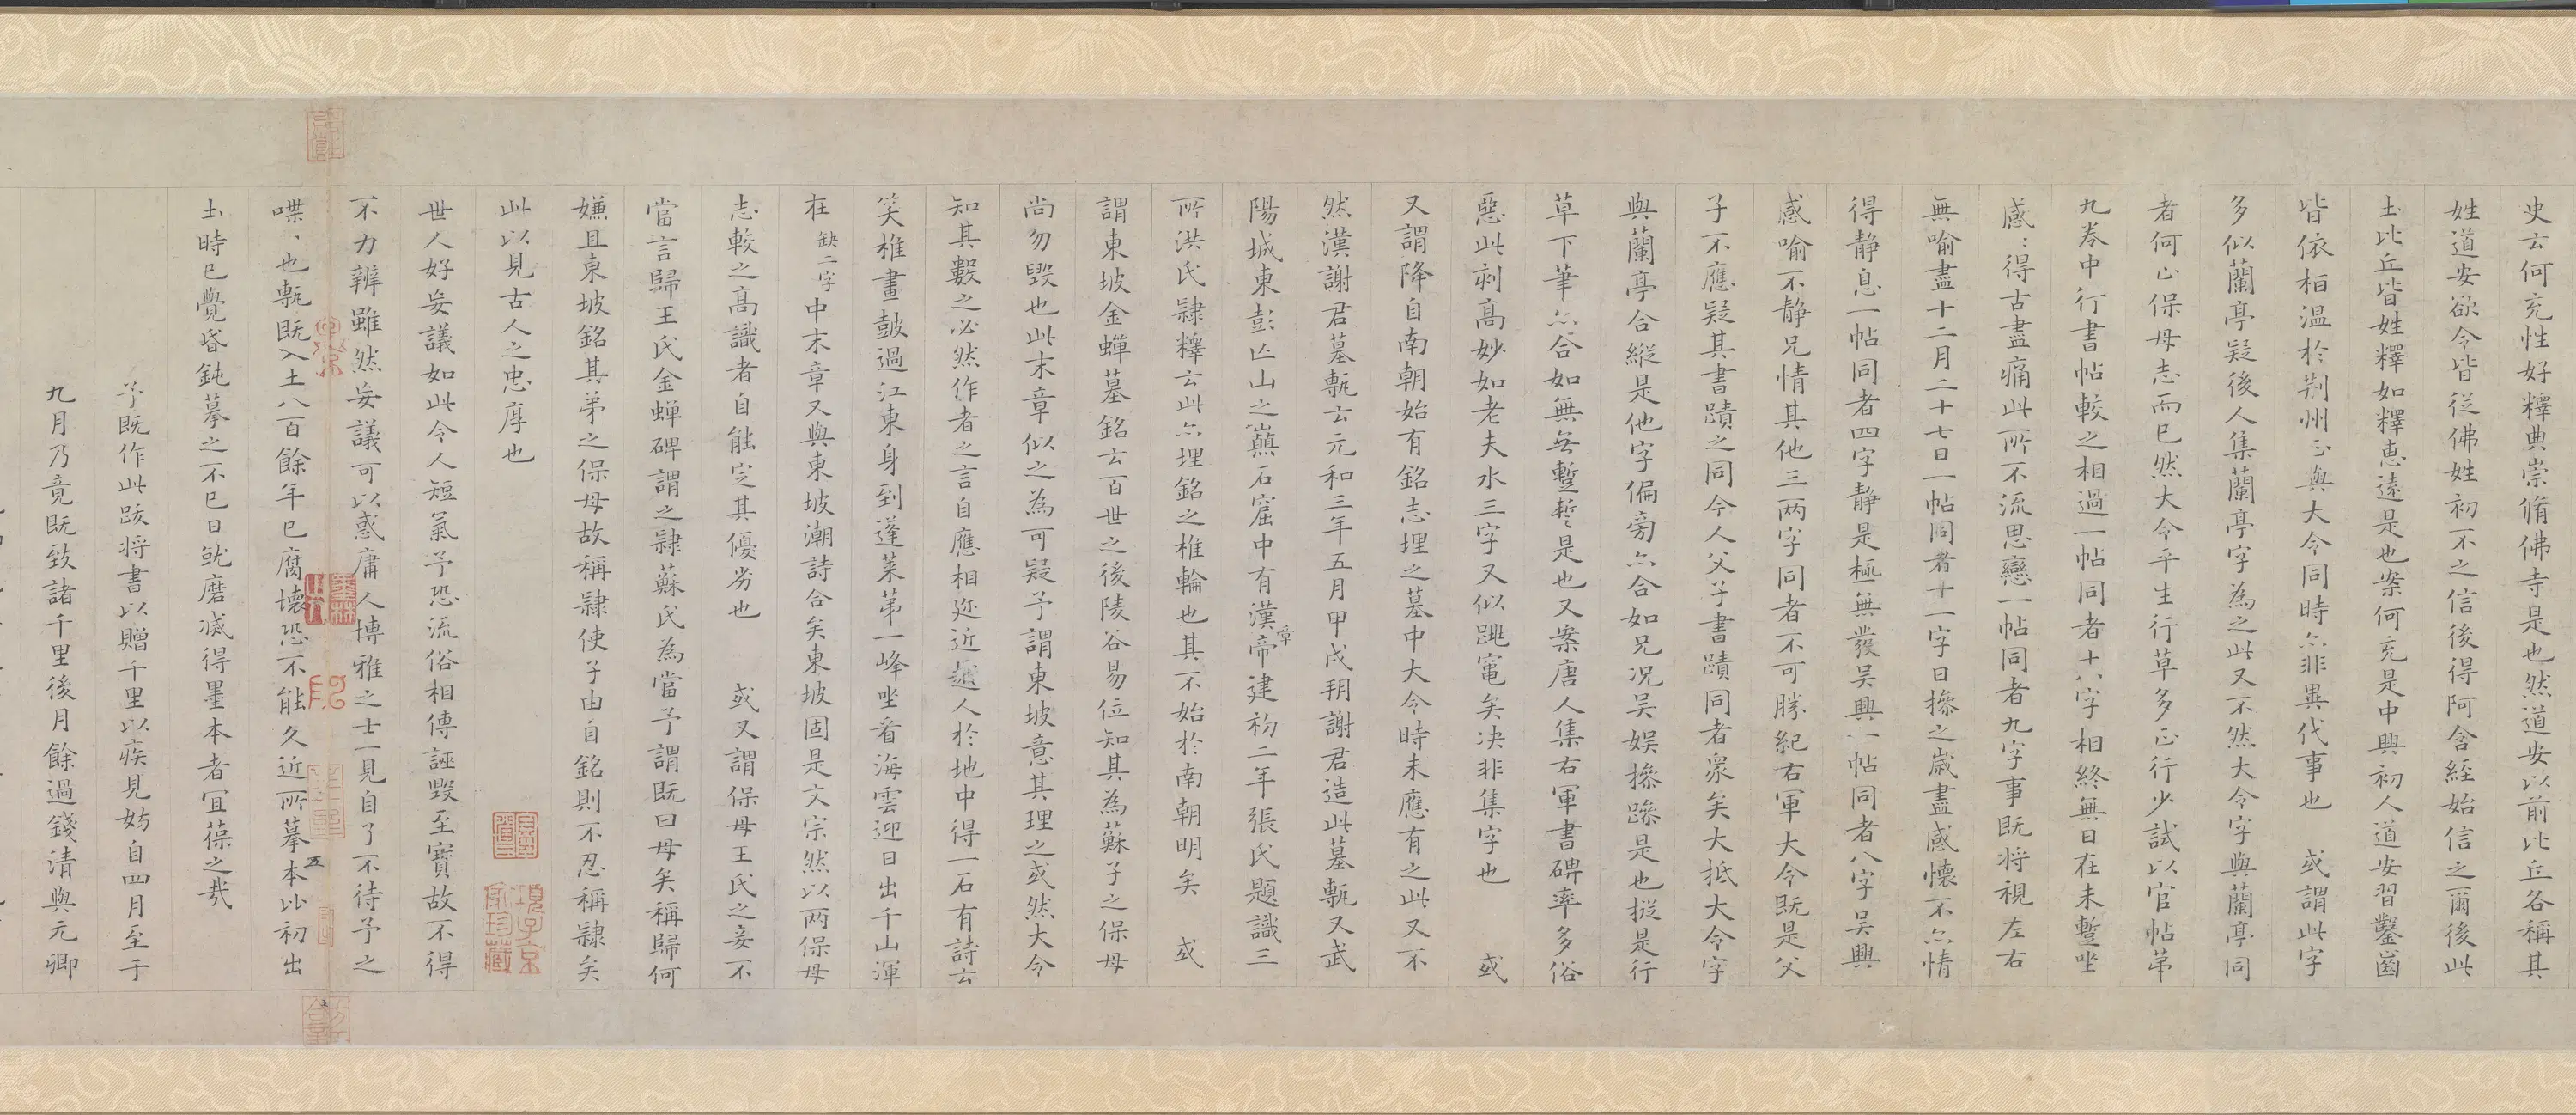 史云何充性好釋典崇脩佛寺是也然道安以前比丘各稱其
姓道安欲令皆從佛姓初不之信後得阿含經始信之爾後此
土比丘皆姓釋如釋惠遠是也案何充是中興初人道安習鑿齒
皆依栢溫於荆州正與大令同時亦非異代事也 或謂此字
多似蘭亭疑後人集蘭亭字為之此又不然大令字與蘭亭同
者何止保母志而已然大令平生行草多正行少試以官帖第
九卷中行書帖較之相過一帖同者十八字相終無日在未蹔坐
感:得古盡痛此所不流思戀一帖同者九字事既将視左右
無喻盡十二月二十七日一帖同者十一字日摻之歲盡感懷不亦情
得静息一帖同者四字静是極無發吴興一帖同者八字吴興
感喻不静兄情其他三两字同者不可勝紀右軍大令既是父
子不應疑其書蹟之同今人父子書蹟同者衆矣大抵大令字
與蘭亭合縱是他字偏旁亦合如兄况吴娱摻蹤是也摐是行
草下筆亦合如無无蹔蹔是也又案唐人集右軍書碑率多俗
惡此剥高妙如老夫水三字又似跳竃矣决非集字也 或
又謂降自南朝始有銘志埋之墓中大令時未應有之此又不
然漢謝君墓甎云元和三年五月甲戌朔謝君造此墓甎又武
陽城東彭亾山之巔石窟中有漢章帝建初二年張氏題識三
所洪氏隸釋云此亦埋銘之椎輪也其不始於南朝明矣 或
謂東坡金蟬墓銘云百世之後陵谷易位知其為蘇子之保母
尚勿毀也此末章似之為可疑予謂東坡意其理之或然大令
知其數之必然作者之言自應相近越人於地中得一石有詩云
笑椎畫鼓過江東身到蓬萊苐一峰坐看海雲迎日出千山渾
在 缺二字 中末章又與東坡潮詩合矣東坡固是文宗然以兩保母
志較之高識者自能定其優劣也 或又謂保母王氏之妾不
當言歸王氏金蟬碑謂之隸蘇氏為當予謂既曰母矣稱歸何
嫌且東坡銘其弟之保母故稱隸使子由自銘則不忍稱隸矣
此以見古人之忠厚也
世人好妄議如此令人短氣予恐流俗相傳誣毀至寶故不得
不力辨雖然妄議可以惑庸人博雅之士一見自了不待予之
喋丶也甎既入土八百餘年已腐壊恐不能久近所摹本比初出
土時已覺昏鈍摹之不已日就磨滅得墨本者宜葆之哉
予既作此跋将書以贈千里以疾見妨自四月至于
九月乃竟既致諸千里後月餘過錢清與元卿